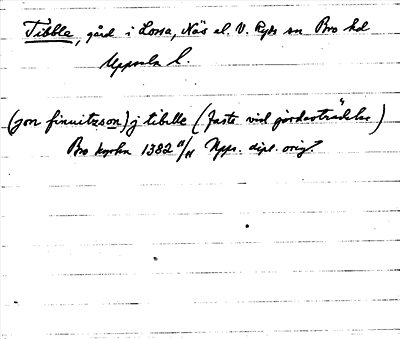 Tibble, gård i Lossa, Näs el. V. Ryds sn Bro hd
Uppsala l.
(jon finuitzson) j tibelle (faste vid jordaöträdelse)
Bro kyrka 1382 Upps. dipl. orig.